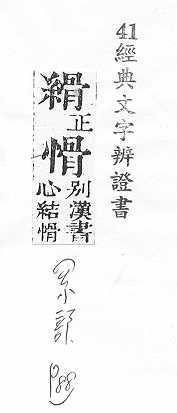 41經典文字辨證書
縎正
愲別漢書
心結愲
P88